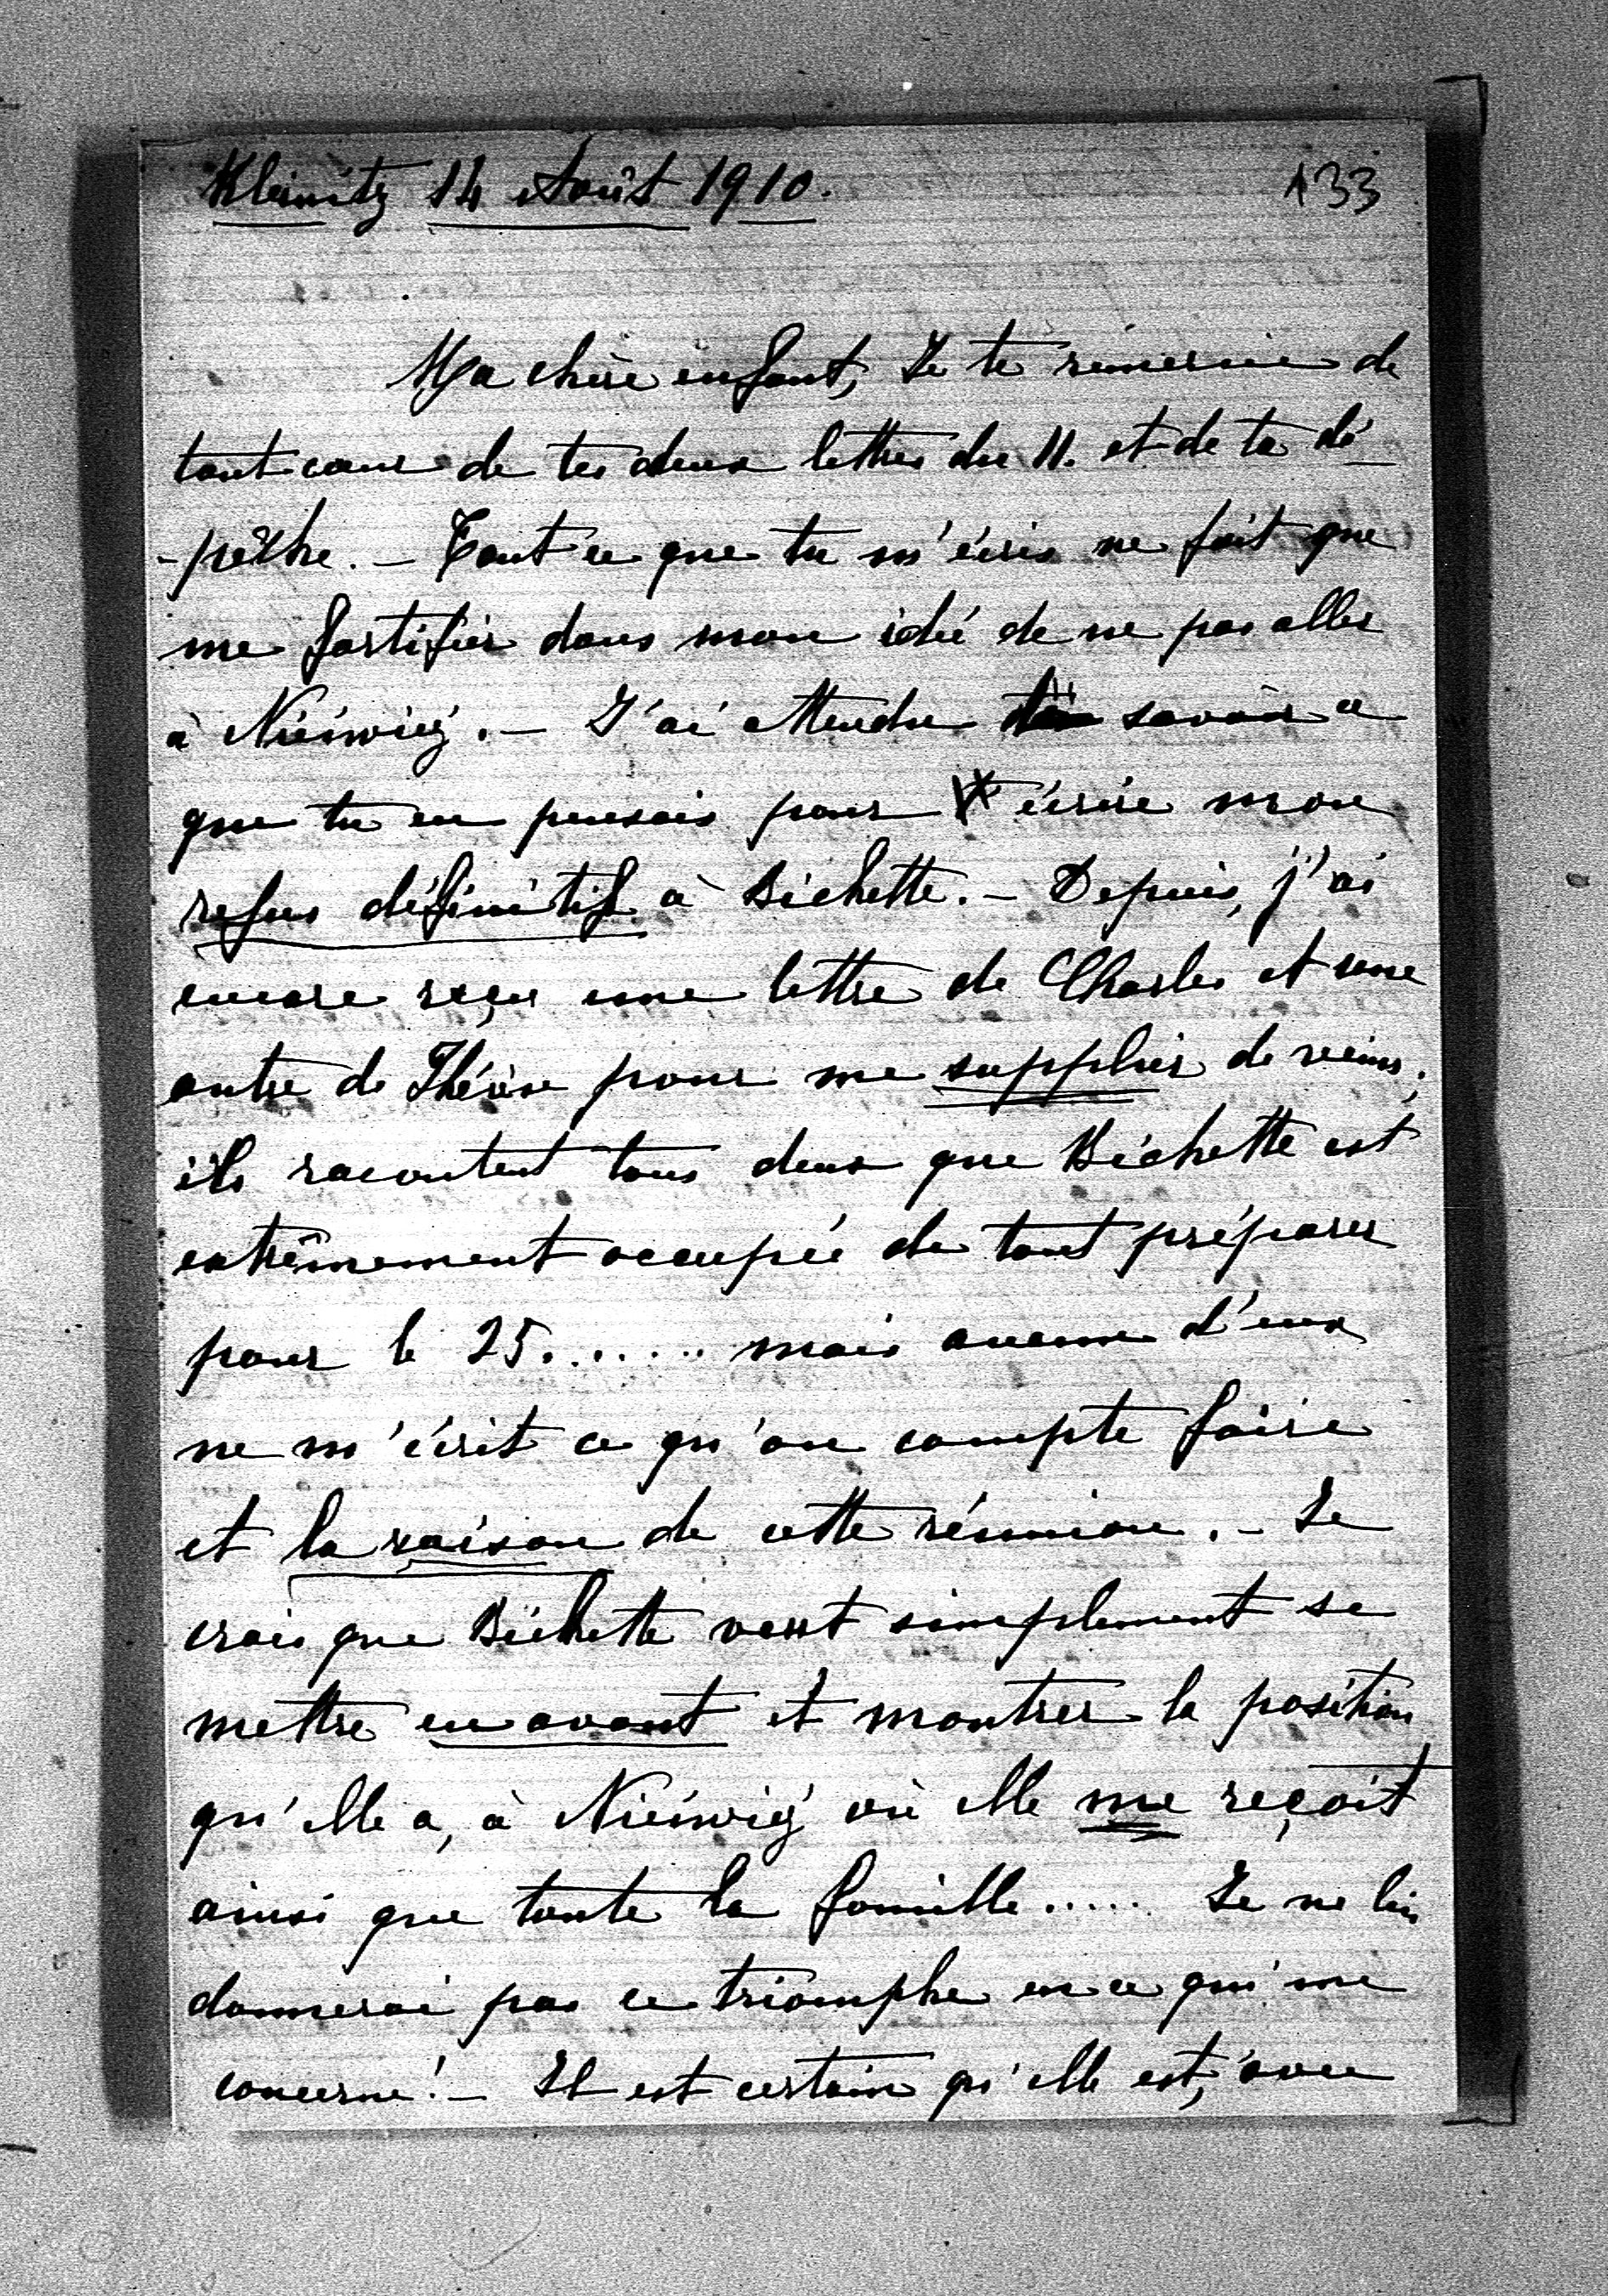 Kleinitz 14 Août 1910.
133
Ma chère enfant, Je te remercie de
tout cœur de tes deux lettres du 11. et de ta dé-
-pêche. - Tout ce que tu m'écris ne fait que
me fortifier dans mon idée de ne pas aller
à Nieświeź. - J'ai attendu savoir ce
que tu en pensais pour écrire mon
refus définitif à Bichette. - Depuis, j'ai
encore reçu une lettre de Charles et une
autre de Thérèse pour me supplier de venir;
ils racontent tous deux que Bichette est
extrêmement occupée de tout préparer
pour le 25....... mais aucun d'eux
ne m'écrit ce qu'on compte faire
et la raison de cette réunion. - Je
crois que Bichette veut simplement se
mettre en avant et montrer la position
qu'elle a, à Nieświeź où elle me reçoit
ainsi que toute la famille..... Je ne lui
donnerai pas ce triomphe en ce qui me
concerne! - Il est certain qu'elle est, avec